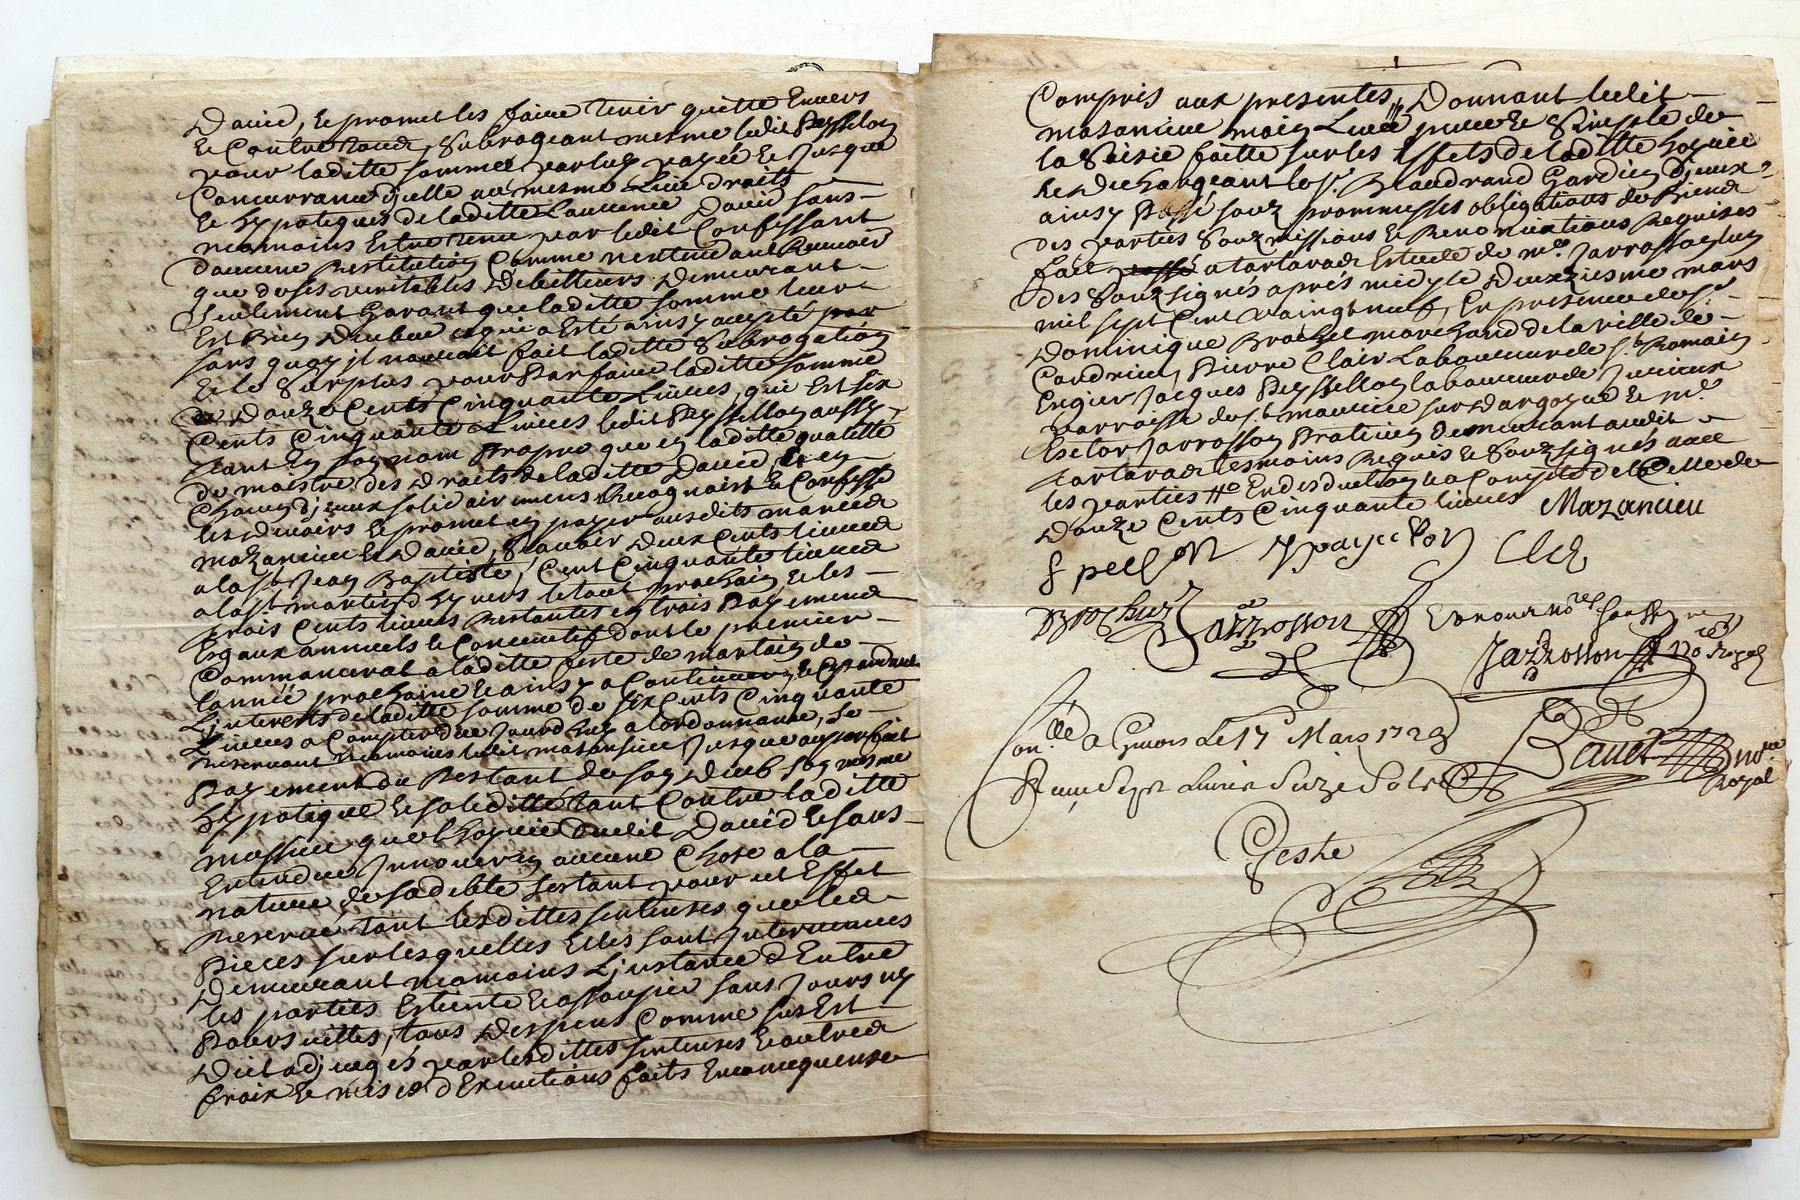 David, et promet les faire tenir quitte Envers
et Contre tous, subrogeant mesme ledit Peyssellon
pour laditte somme par luy payée et Jusque
Concurrance d'jcelle au mesme Lieu droits
et hypoteques de laditte Laurence David sans
neamoins Estre tenu par ledit Confessant
d'aucune Restitution Comme n'entendant Recevoir
que de ses veritables Debitteurs Demeurant
seulement Garant que laditte somme leur
Est Bien Deube ce qui a Esté ainsy accepté par
sans quoy jl n'auroit fait laditte Subrogation
Et le Surplus pour Parfaire laditte somme
de Douze Cents Cinquante Livres, qui Est six
Cents Cinquante Livres ledit Peyssellon aussy
tant En son nom Propre que en laditte qualitté
de maistre des Droits de laditte David et en
Chacun d'jceux solidairement Recognoist et Confesse
les devoirs et promet en payer ausdits mariés
mazancieu et David, Scavoir Deux Cents livres
a la st Jean Baptiste, Cent Cinquante livres
a la st martin d'hyvers le tout prochain et les
trois Cents livres Restantes en trois Payements
Egaux annuels et Consecutifs dont le premier
Commancerat a laditte feste de martin de
l'année prochaine et ainsy a Continuer, et Cependant
L'jnterests de laditte somme de six Cents Cinquante
Livres a Compter de Jourd'huy a l'ordonnance, se
Reservant neamoins ledit mazancieu Jusque au parfait
Payement du Restant de son Deub son mesme
hypoteque et soliditté tant Contre laditte
massieu que l'hoyrie dudit David et sans
Entendre Jnnover en aucune Chose a la
nature de sa debte sortant pour cet Effet
Reserve tant lesdittes sentenses que les
Pieces sur lesquelles Elles sont Intervenues
Demeurant neamoins L'jnstance d'Entre
les parties Esteinte et assoupie sans Jours ny
Poursuittes, tous Despens Comme sus Est
Dit adjugés par lesdittes sentenses et autres
fraix et mises d'Executions faits En consequense
Compris aux presentes, Donnant ledit
mazancieu main Levée pure et Simple de
la Saisie faitte sur les Effets de laditte hoyrie
et Deschargeant le sr. Blaudrand Gardien d'jceux
ainsy Passé souz prommesses obligations de Biens
des parties Souzmissions et Renonciations Requises
fait a tartaras Estude de mre Jarrosson l'un
des Souzsignés aprés midy le Deuxziesme mars
mil sept Cent vaingt neuf, En presence de sr.
Dominique Brochet marchand de la ville de
Condrieu, Pierre Clair Laboureur de st Romain
En gier Jacques Peyssellon laboureur de Jurieux
parroisse de st maurice sur Dargoyre et mr.
Estor Jarrosson Praticien Demeurant audit
tartaras tesmoins Requis et Souzsignés avec
les parties En desduction et a Compte de Celle de
Douze Cents Cinquante livres Mazancieu
Brochet Jarrosson
Jarrosson no. Royal
Con.llé a Givors Le 17 Mars 1729
Reçu Sept Livres Seize Sols
no.re
Royal
Geste